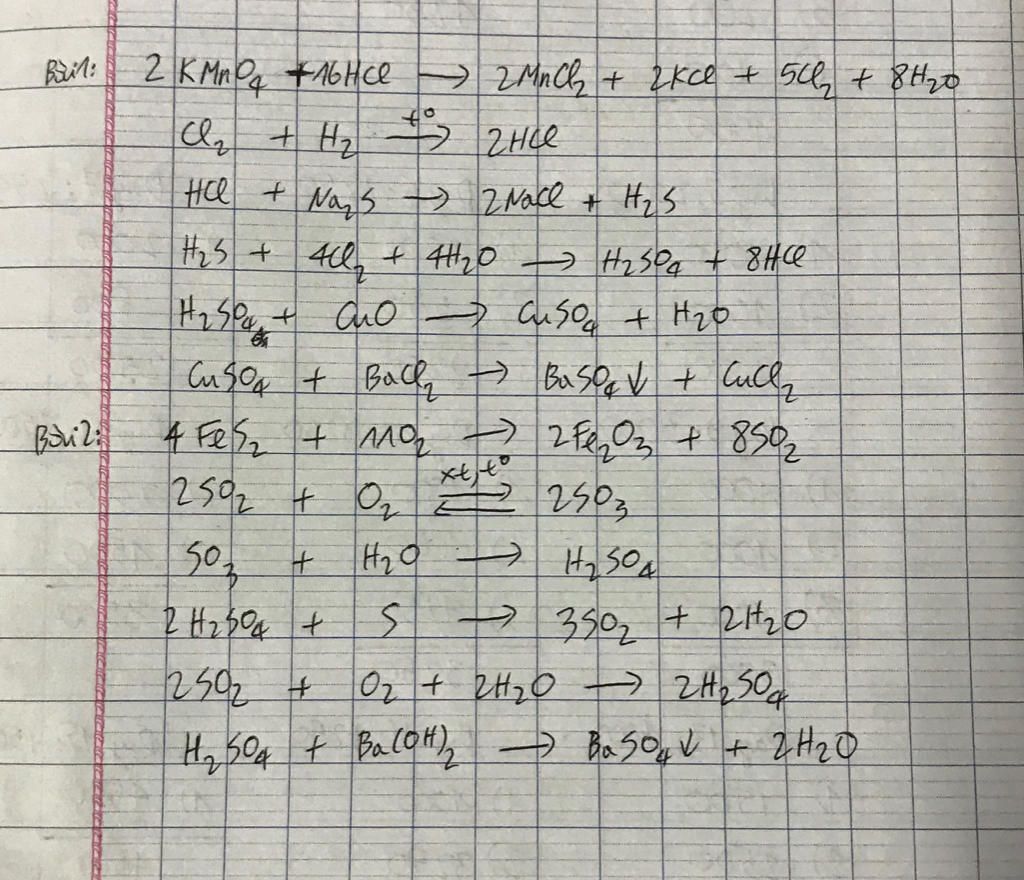 Bài 1: 2 KMnO₄ + 16HCl → 2MnCl₂ + 2KCl + 5Cl₂ + 8H₂O
Cl₂ + H₂ →t° 2HCl
HCl + Na₂S → 2NaCl + H₂S
H₂S + 4Cl₂ + 4H₂O → H₂SO₄ + 8HCl
H₂SO₄ + CuO → CuSO₄ + H₂O
CuSO₄ + BaCl₂ → BaSO₄↓ + CuCl₂
Bài 2: 4 FeS₂ + 11O₂ → 2Fe₂O₃ + 8SO₂
2SO₂ + O₂ ⇌xt, t° 2SO₃
SO₃ + H₂O → H₂SO₄
2 H₂SO₄ + S → 3SO₂ + 2H₂O
2SO₂ + O₂ + 2H₂O → 2H₂SO₄
H₂SO₄ + Ba(OH)₂ → BaSO₄↓ + 2H₂O